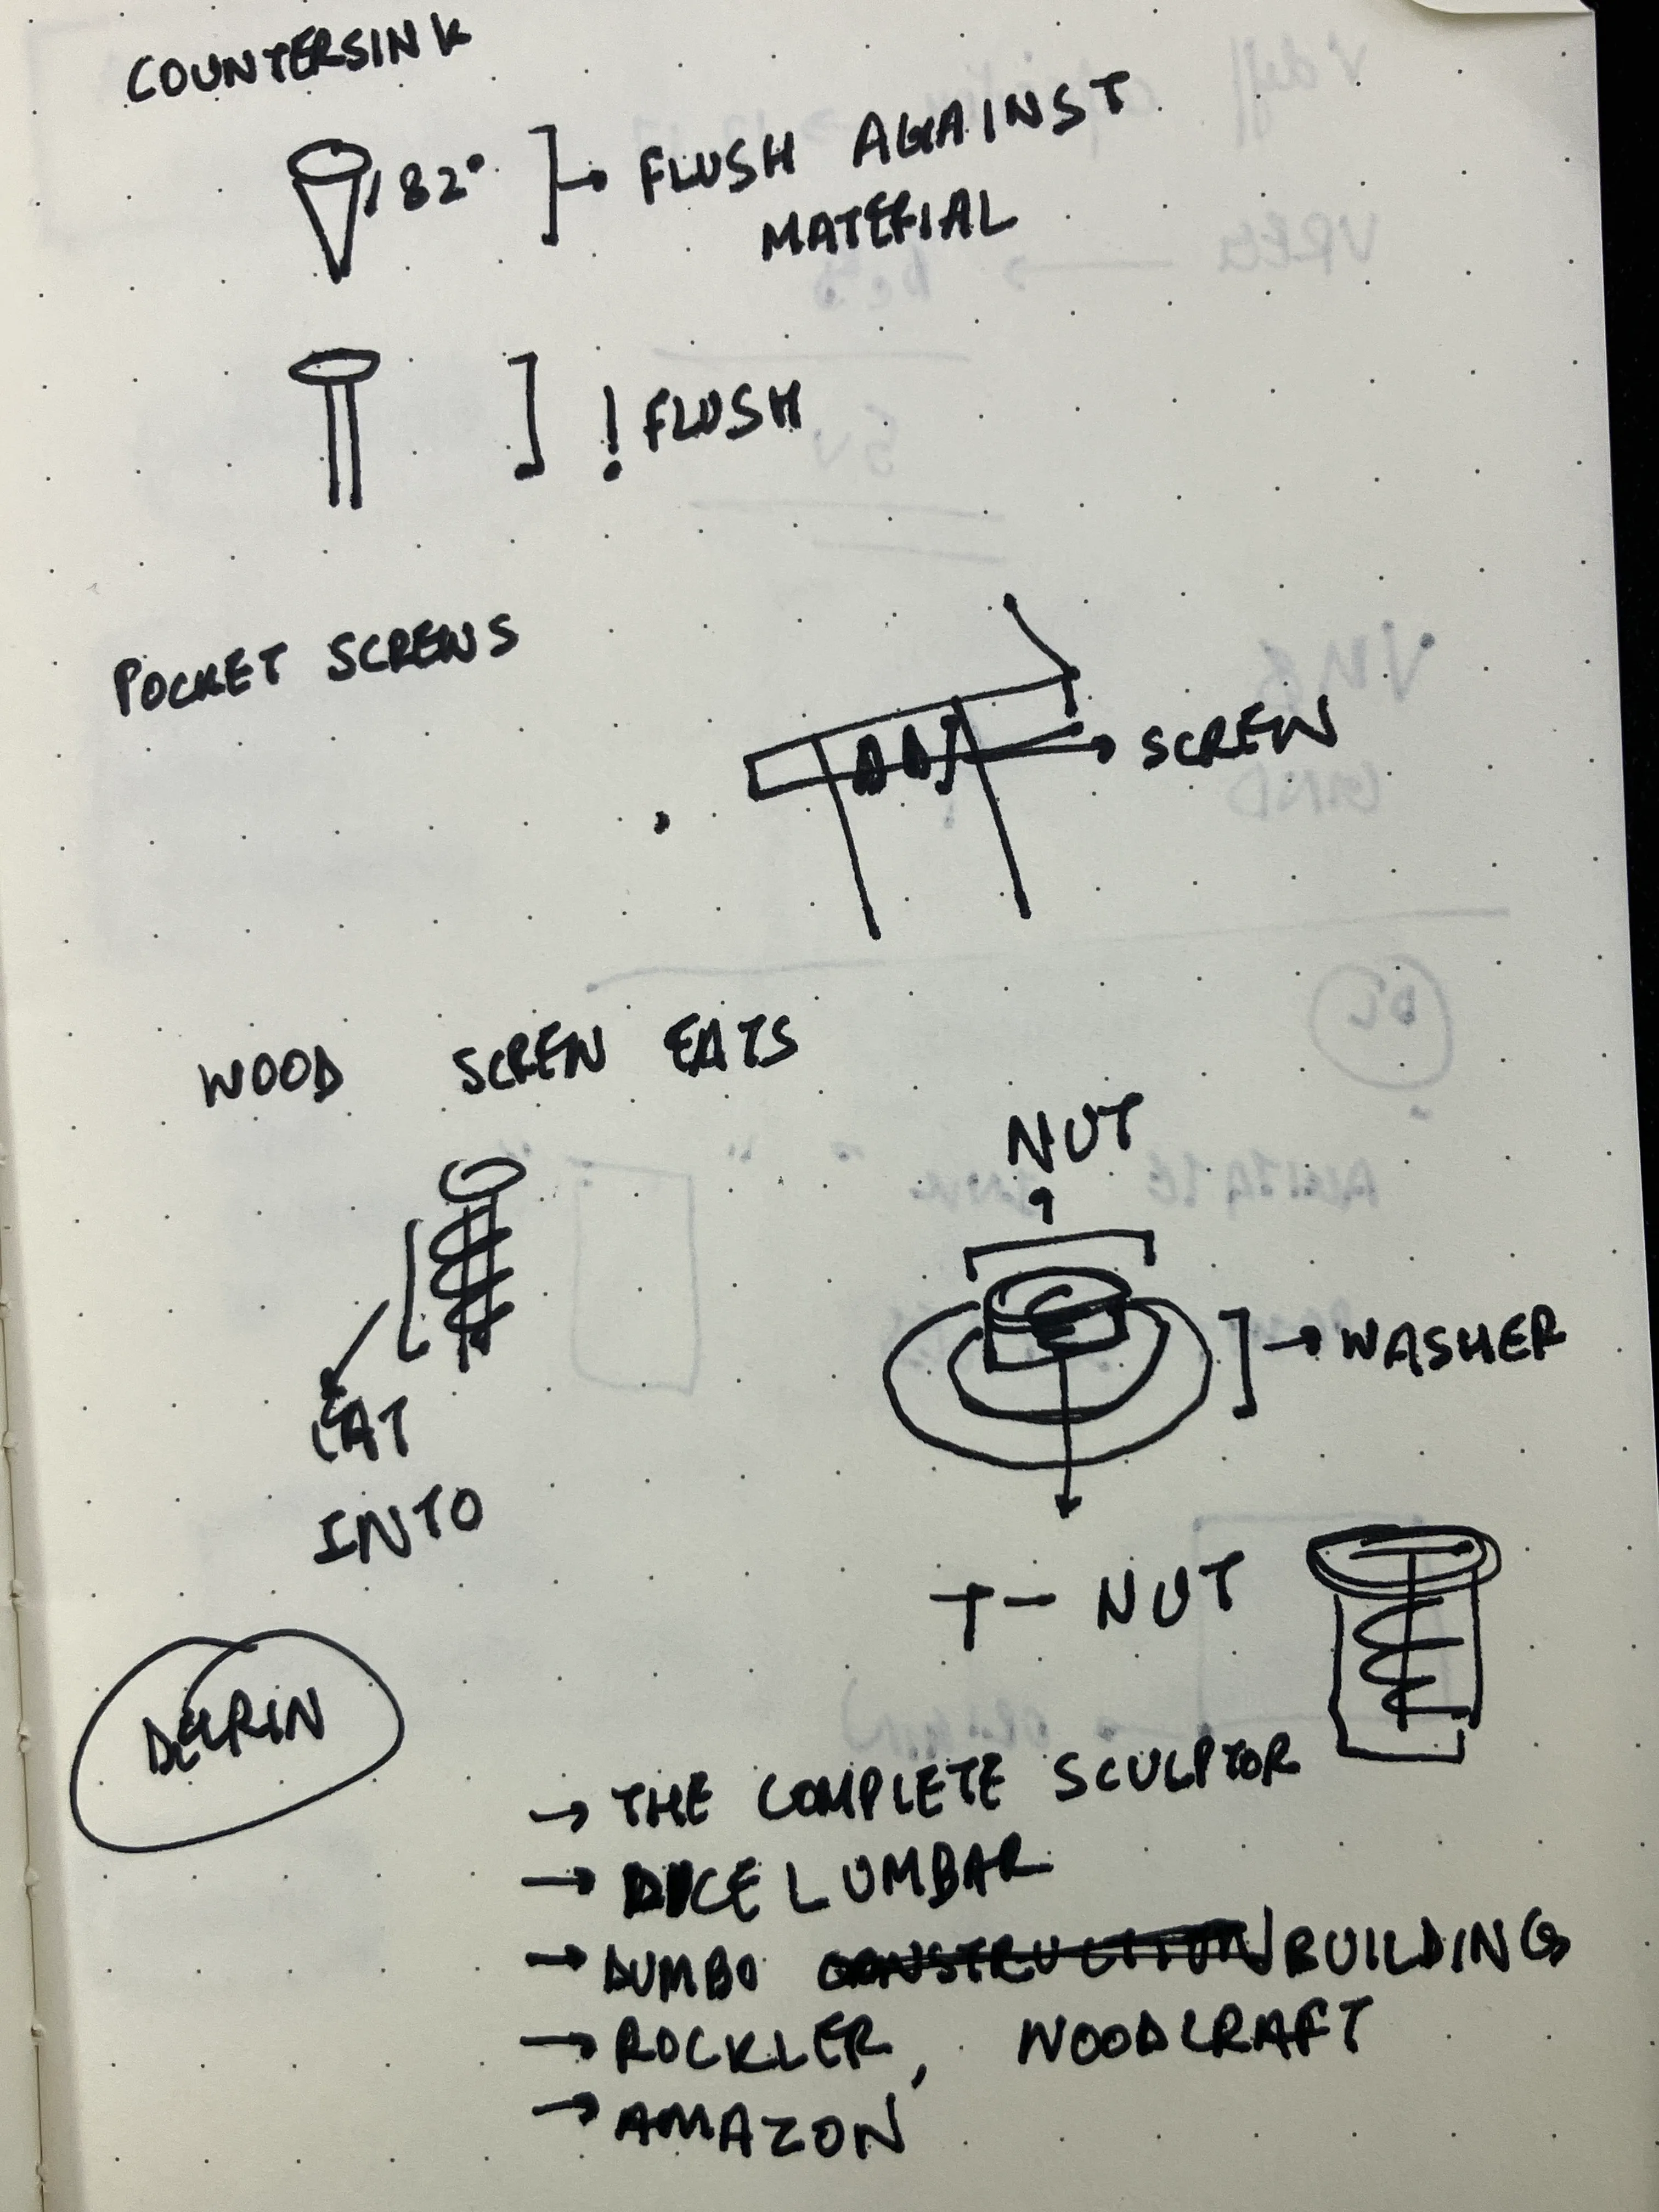 COUNTERSINK
82° → FLUSH AGAINST
MATERIAL
! FLUSH
POCKET SCREWS
→ SCREW
WOOD SCREW EATS
NUT
→ WASHER
EAT
INTO
T- NUT
DELRIN
→ THE COMPLETE SCULPTOR
→ DICE LUMBAR
→ DUMBO CONSTRUCTION BUILDING
→ ROCKLER, WOODCRAFT
→ AMAZON